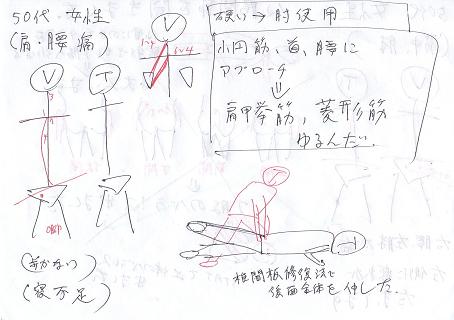 50代・女性
(肩・腰痛)
硬い→肘使用
小円筋、首、腰に
アプローチ
⇓
肩甲挙筋、菱形筋
ゆるんだ。
V
T
V
T
T
椎間板修復法で
後面全体を伸した。
(歩かない)
(寝不足)